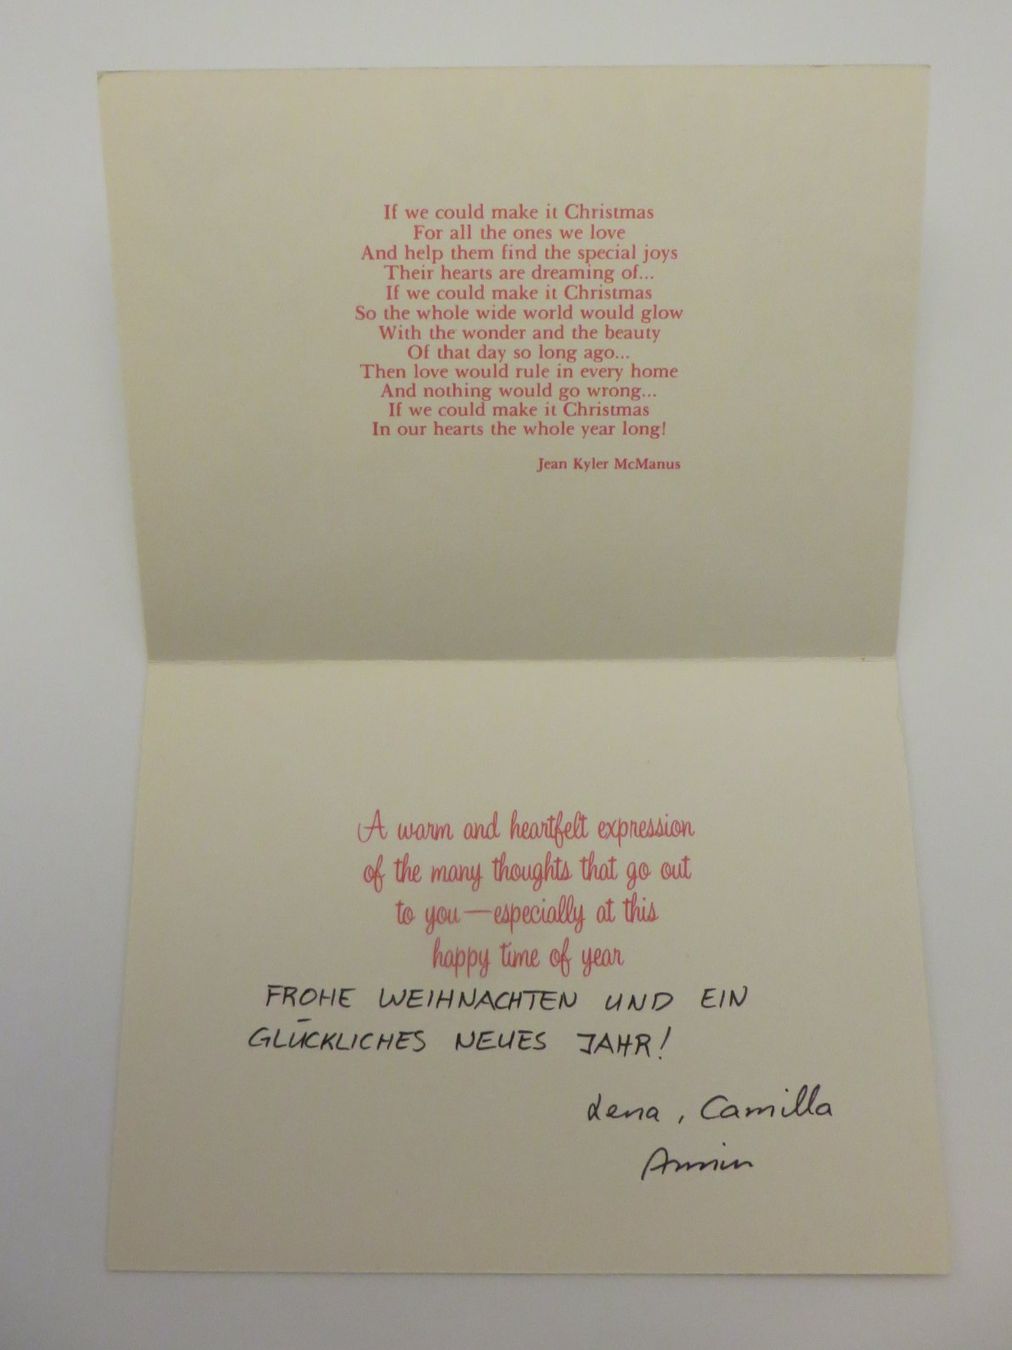 If we could make it Christmas
For all the ones we love
And help them find the special joys
Their hearts are dreaming of...
If we could make it Christmas
So the whole wide world would glow
With the wonder and the beauty
Of that day so long ago...
Then love would rule in every home
And nothing would go wrong...
If we could make it Christmas
In our hearts the whole year long!
Jean Kyler McManus
A warm and heartfelt expression
of the many thoughts that go out
to you—especially at this
happy time of year
FROHE WEIHNACHTEN UND EIN
GLÜCKLICHES NEUES JAHR!
Lena, Camilla
Armin